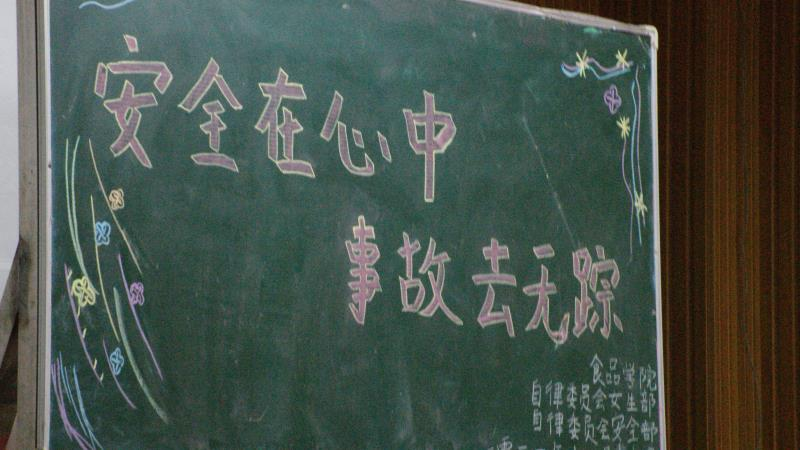 安全在心中
事故去无踪
食品学院
自律委员会女生部
自律委员会安全部